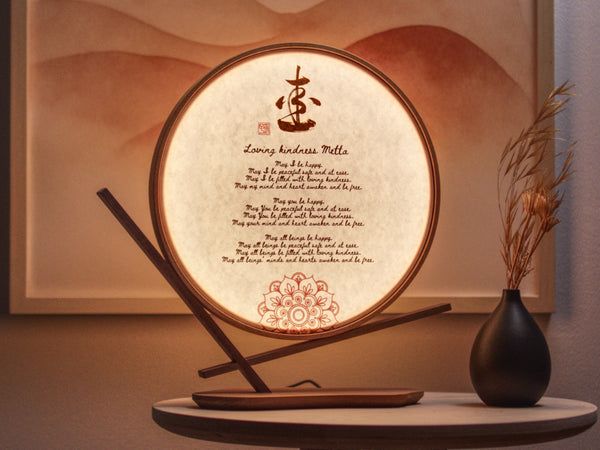 Loving kindness Metta
May I be happy.
May I be peaceful safe and at ease.
May I be filled with loving kindness.
May my mind and heart awaken and be free.
May you be happy.
May You be peaceful safe and at ease.
May You be filled with loving kindness.
May your mind and heart awaken and be free.
May all beings be happy,
May all beings be peaceful safe and at ease.
May all beings be filled with loving kindness.
May all beings' minds and hearts awaken and be free.